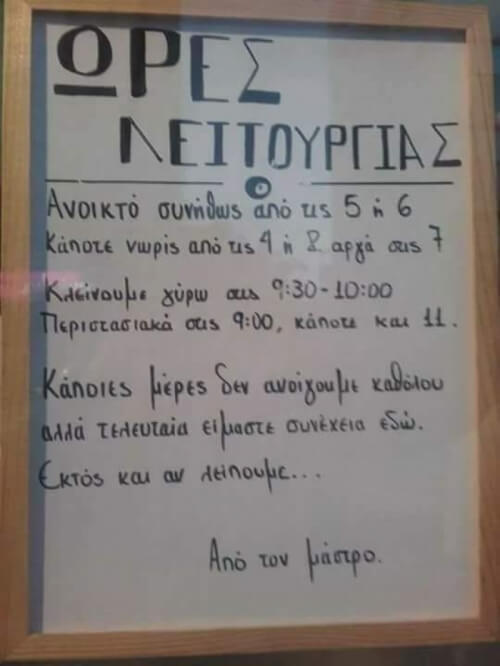 ΩΡΕΣ
ΛΕΙΤΟΥΡΓΙΑΣ
Ανοικτό συνήθως από τις 5 ή 6
Κάποτε νωρίς από τις 4 ή & αργά στις 7
Κλείνουμε γύρω στις 9:30-10:00
Περιστασιακά στις 9:00, κάποτε και 11.
Κάποιες μέρες δεν ανοίγουμε καθόλου
αλλά τελευταία είμαστε συνέχεια εδώ.
Εκτός και αν λείπουμε...
Από τον μάστρο.